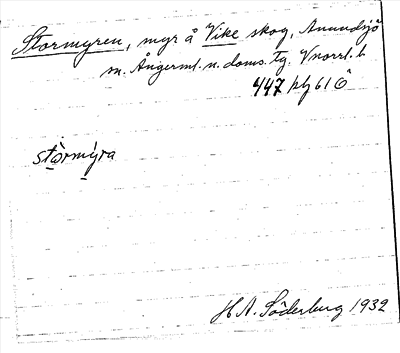 Stormyren, myr å Vike skog, Anundsjö
m. Ångerml. n. doms. tg. Vnorrl. l.
447 hbg 61 Ö
stòrmýra
H. A. Söderberg 1932